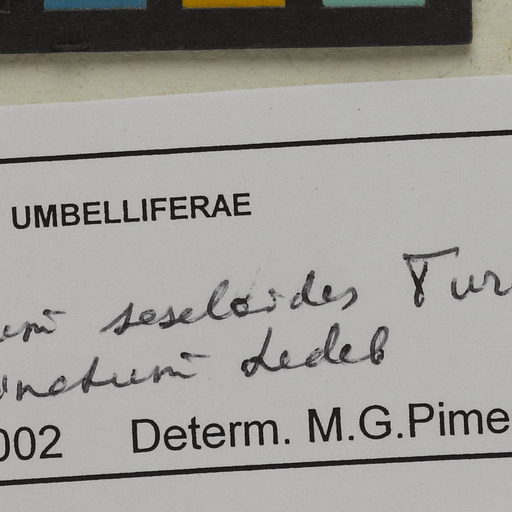 UMBELLIFERAE
seseloides Tur
Ledeb
002 Determ. M.G.Pime